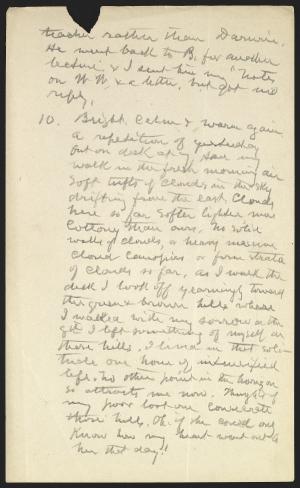 teacher rather than Darwin.
He went back to B. for another
lecture & I sent him my "Notes
on W. W. & a letter, but got no
reply.
10. Bright, calm & warm again
a repetition of yesterday
out on deck at 7 & am my
walk in the fresh morning air
Soft tufts of clouds in the sky
drifting from the east. Clouds
here so far softer lighter more
cottony than ours. No solid
walls of clouds, or heavy massive
cloud canopies or firm strata
of clouds so far. As I walk the
deck I look off yearningly toward
the green & brown hills where
I walked with my sorrow on the
9th I left something of myself on
those hills. I lived in that soli-
tude one hour of intensified
life. No other point in the horizon
so attracts me now. Thoughts of
my poor lost one consecrate
those hills. Oh, if she could only
know how my heart went out to
her that day!!